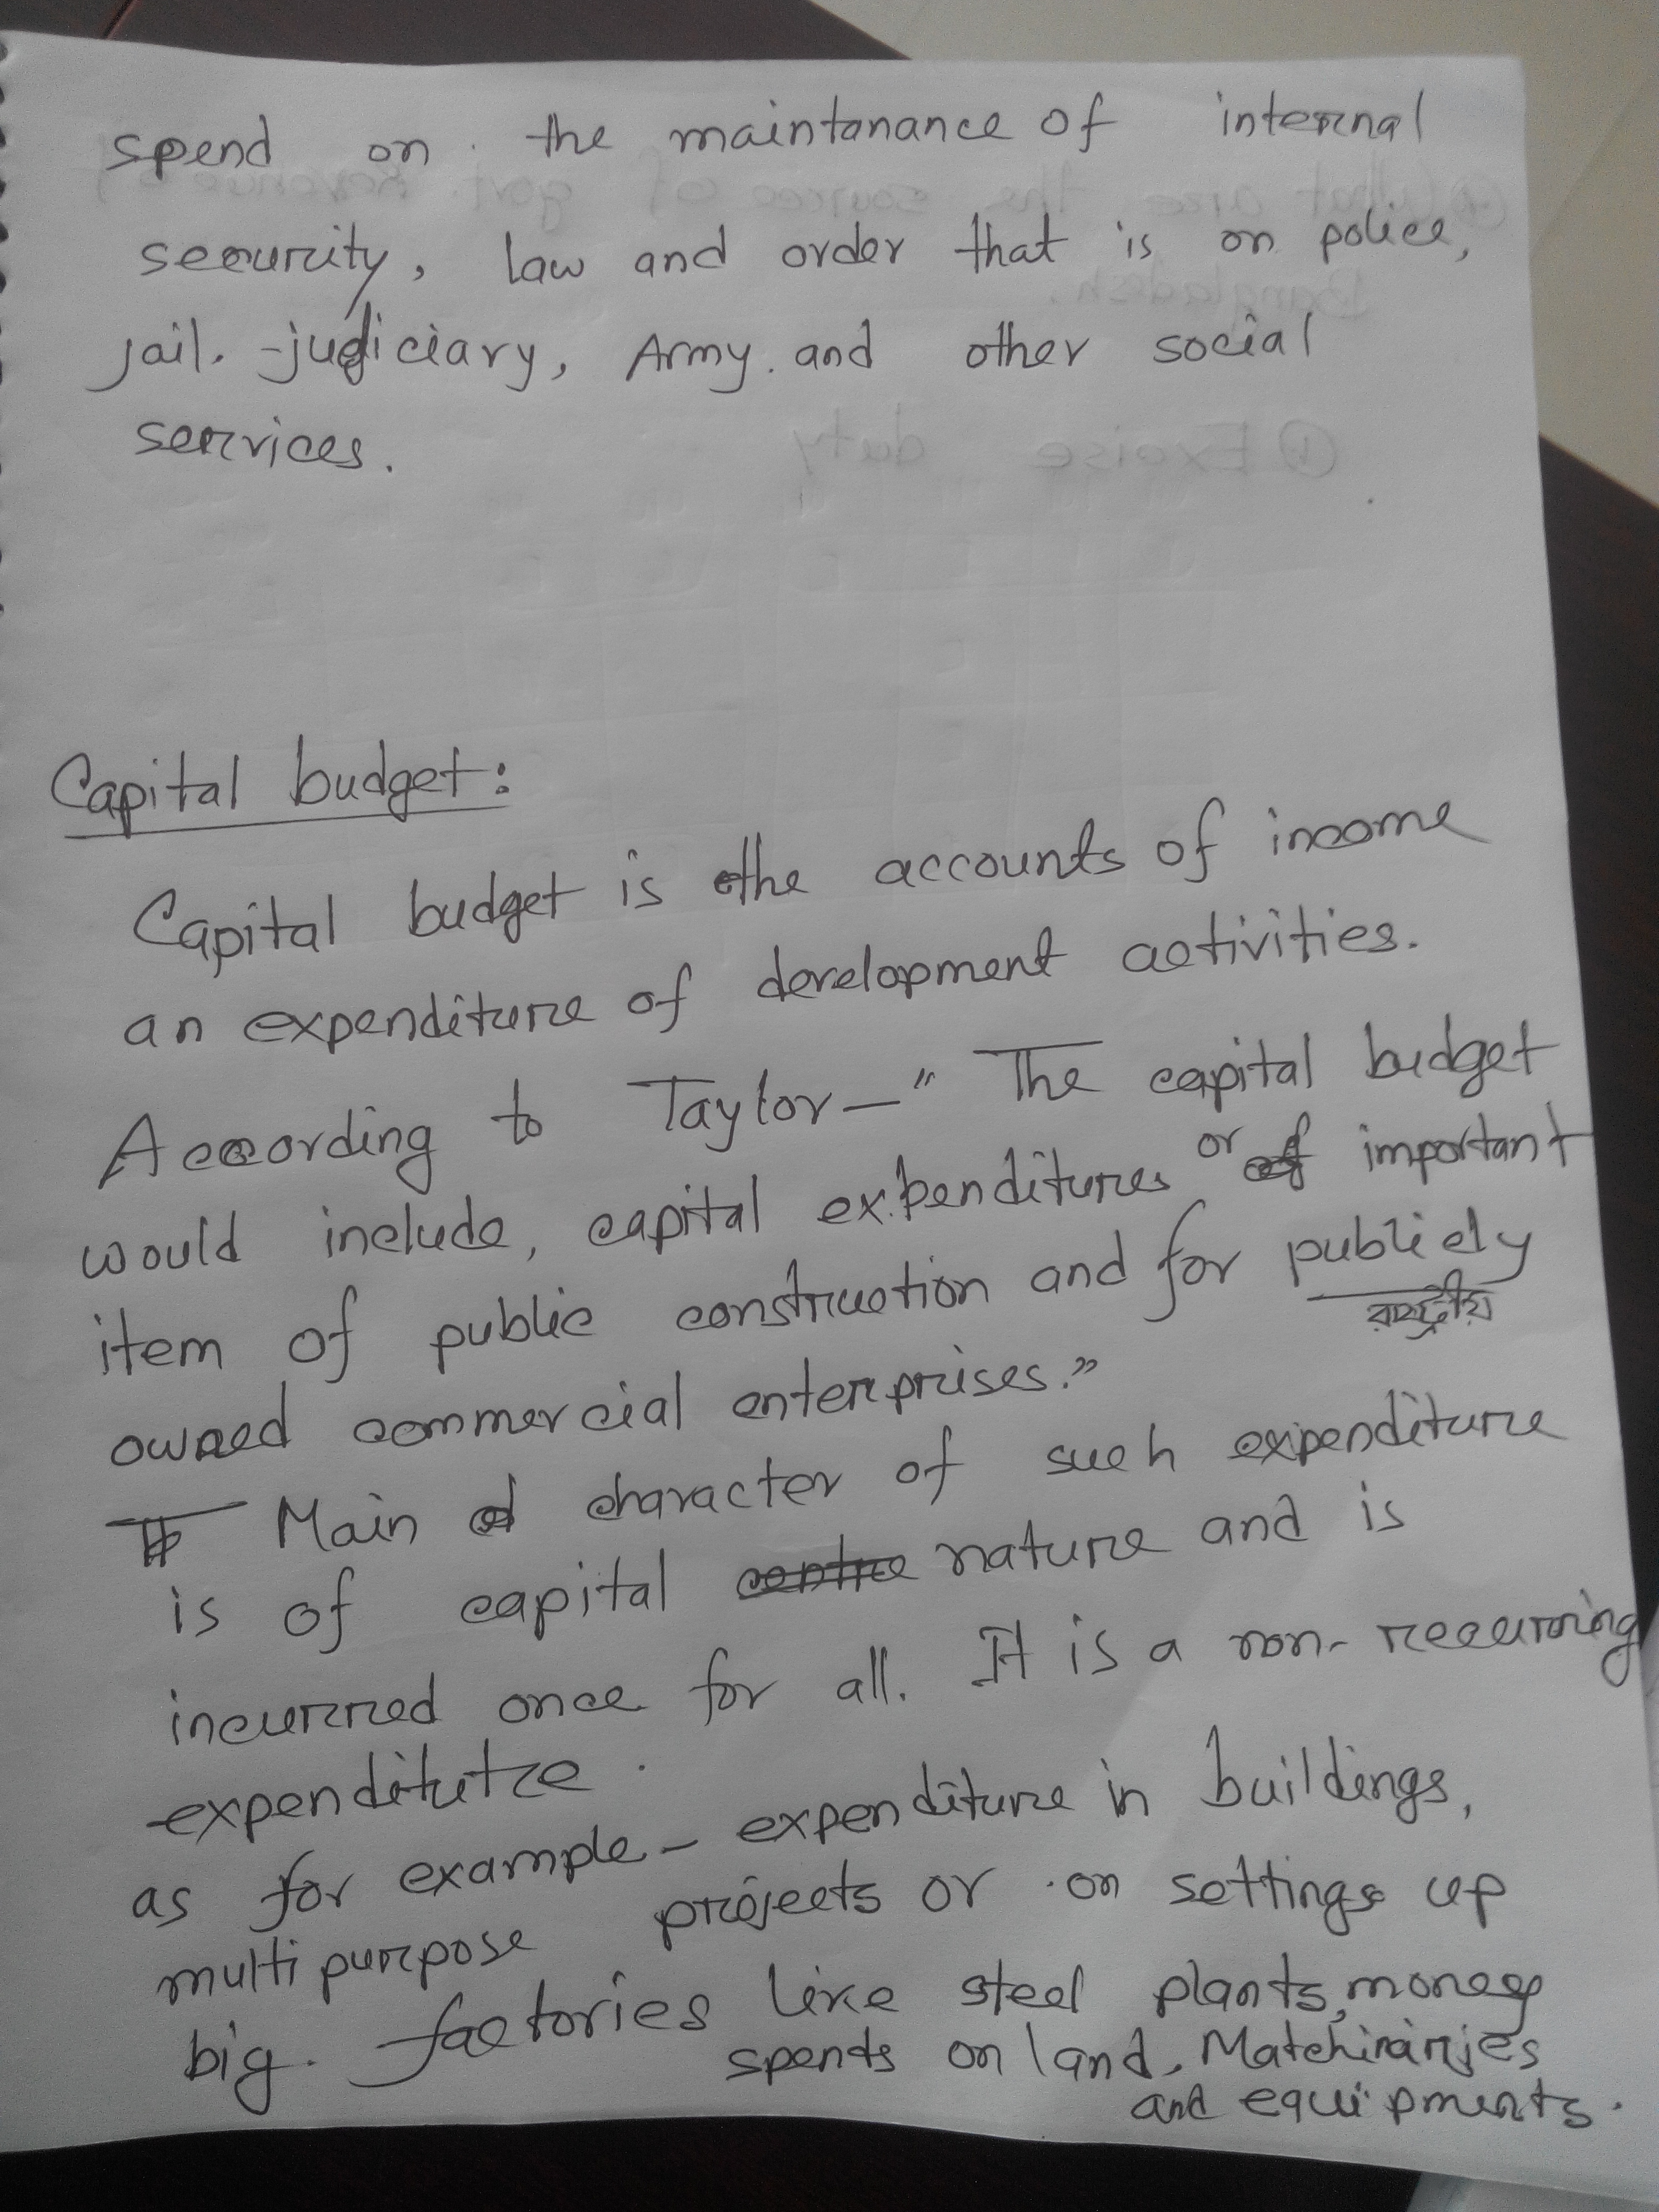 spend on the maintanance of internal
security, law and order that is on police,
jail. -judiciary, Army. and other social
services.
Capital budget:
Capital budget is the accounts of income
an expenditure of development activities.
According to Taylor—" The capital budget
would include, capital expenditures or important
item of public construction and for publicly
রাষ্ট্রীয়
owned commercial enterprises."
Main character of such expenditure
is of capital nature and is
incurred once for all. It is a non-recurring
expenditutre.
as for example- expenditure in buildings,
multipurpose projects or on settings up
big. factories like steel plants, money
spends on land, Matchinarjes
and equipments.